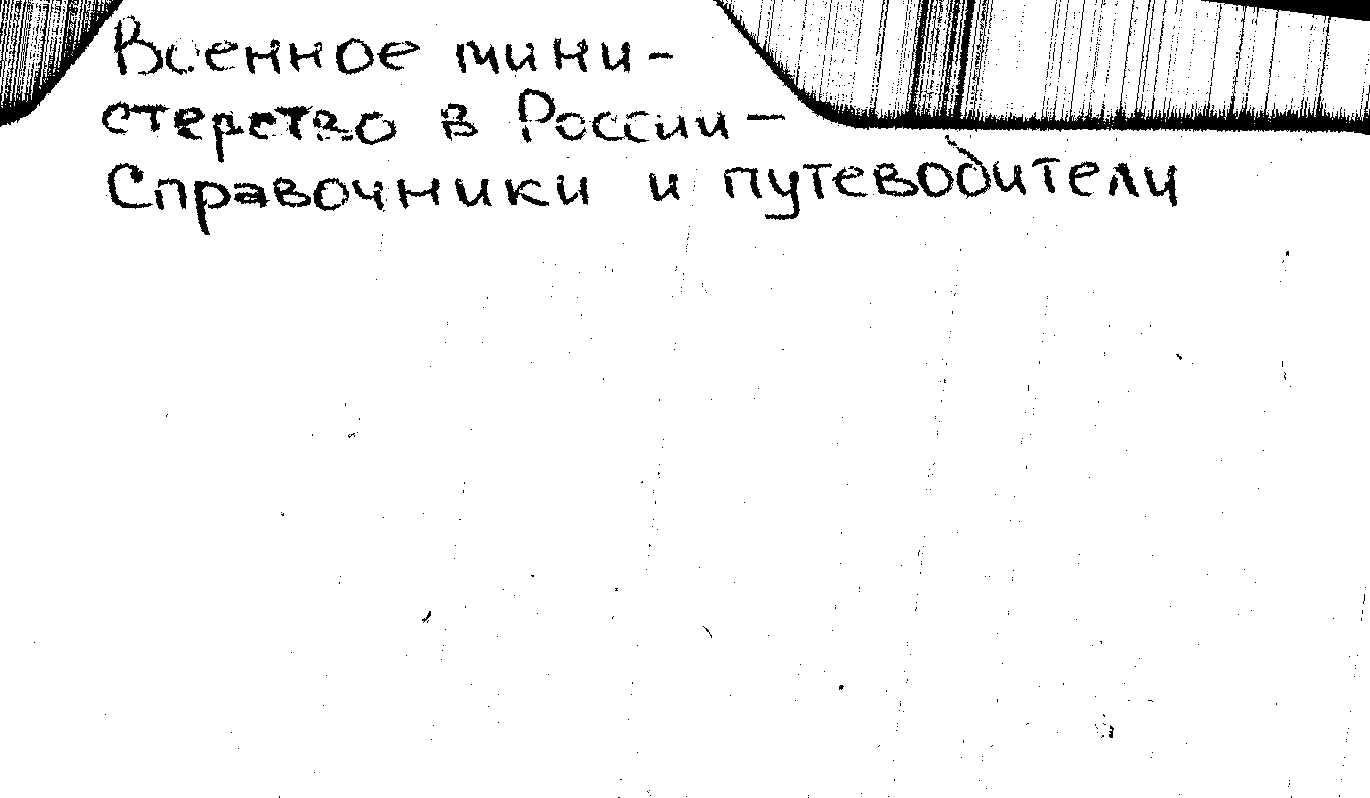 Военное мини-
стерство в России —
Справочники и путеводители